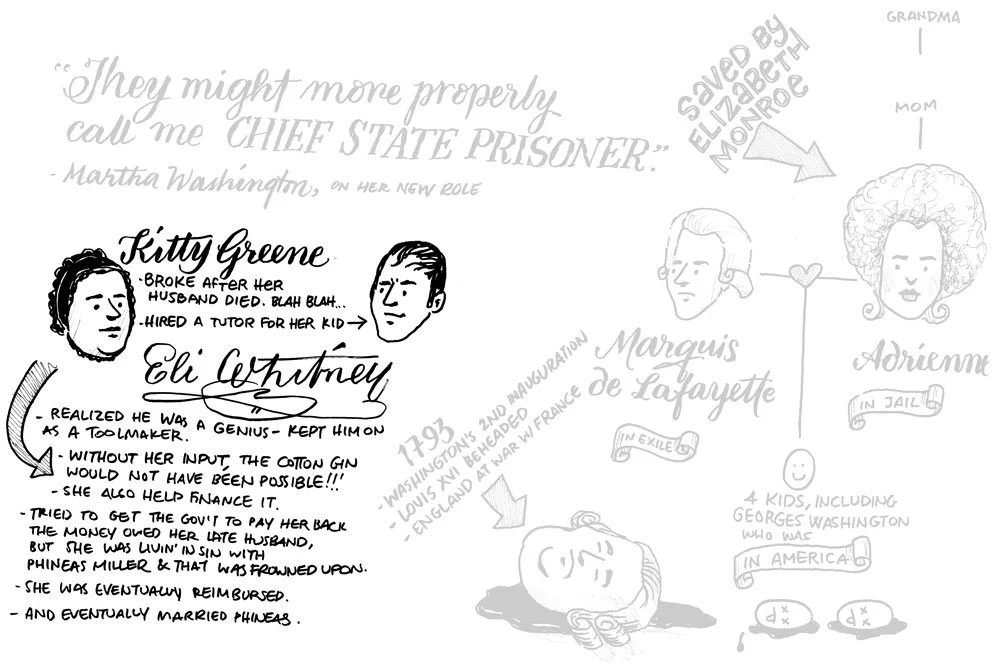 "They might more properly
call me CHIEF STATE PRISONER."
- Martha Washington, ON HER NEW ROLE
SAVED BY
ELIZABETH
MONROE
GRANDMA
MOM
Kitty Greene
- BROKE AFTER HER
HUSBAND DIED. BLAH BLAH...
- HIRED A TUTOR FOR HER KID →
Eli Whitney
- REALIZED HE WAS A GENIUS - KEPT HIM ON
AS A TOOLMAKER.
- WITHOUT HER INPUT, THE COTTON GIN
WOULD NOT HAVE BEEN POSSIBLE!!!
- SHE ALSO HELP FINANCE IT.
- TRIED TO GET THE GOV'T TO PAY HER BACK
THE MONEY OWED HER LATE HUSBAND,
BUT SHE WAS LIVIN' IN SIN WITH
PHINEAS MILLER & THAT WAS FROWNED UPON.
- SHE WAS EVENTUALLY REIMBURSED.
- AND EVENTUALLY MARRIED PHINEAS.
1793
- WASHINGTON'S 2ND INAUGURATION
- LOUIS XVI BEHEADED
- ENGLAND AT WAR W/ FRANCE
Marquis
de Lafayette
IN EXILE
Adrienne
IN JAIL
4 KIDS, INCLUDING
GEORGES WASHINGTON
WHO WAS
IN AMERICA